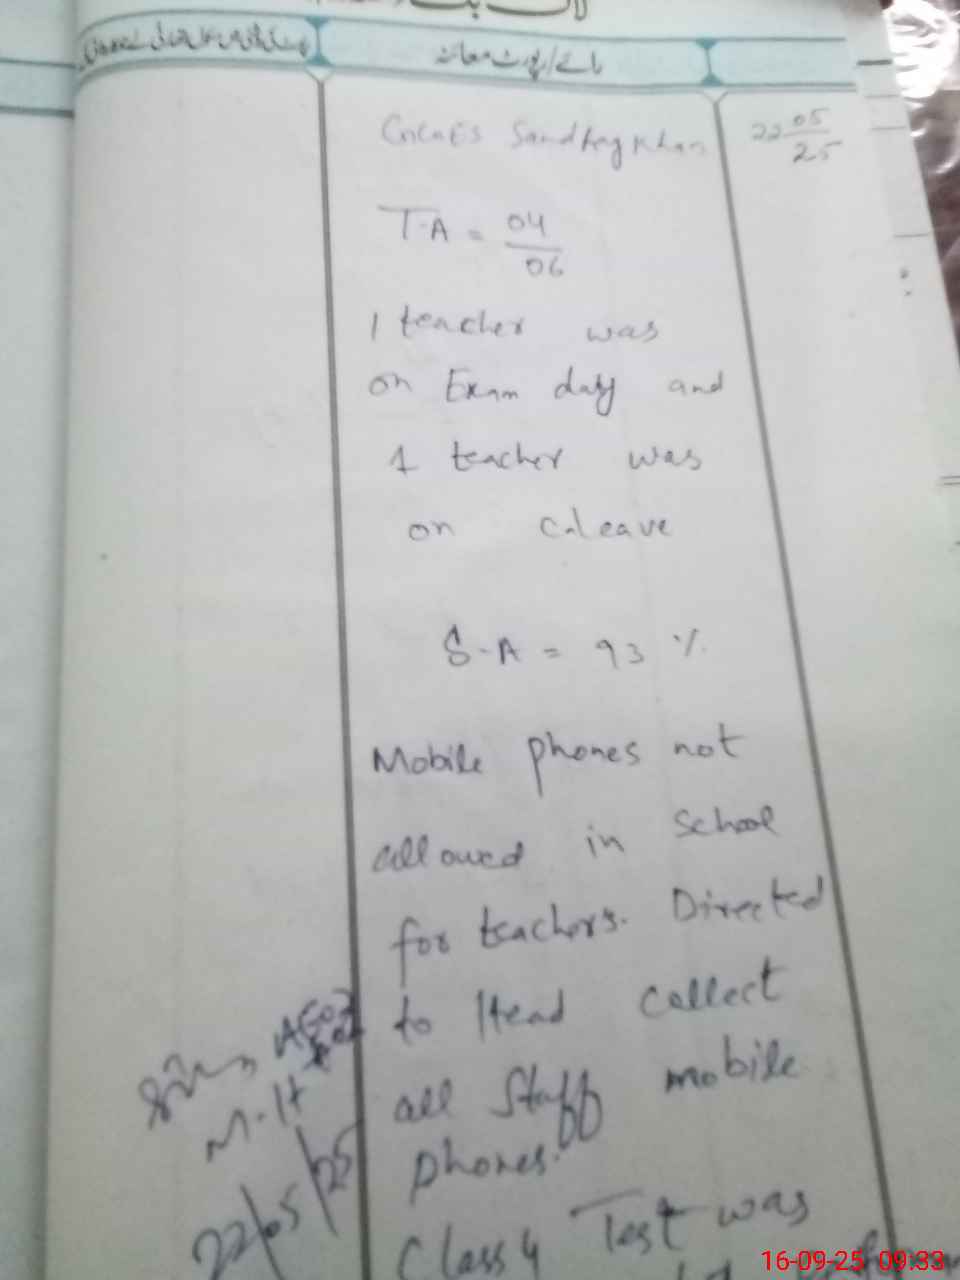 لاگ بک
رائے/رپورٹ معائنہ
22 05/25
Sandhag Khan
T-A = 04/06
1 teacher was
on Exam duty and
1 teacher was
on C.Leave
S-A = 93 %
Mobile phones not
allowed in School
for teachers. Directed
to Head Collect
all Staff mobile
phones.
Class 4 Test was
M-H
22/05/25
16-09-25 09:33